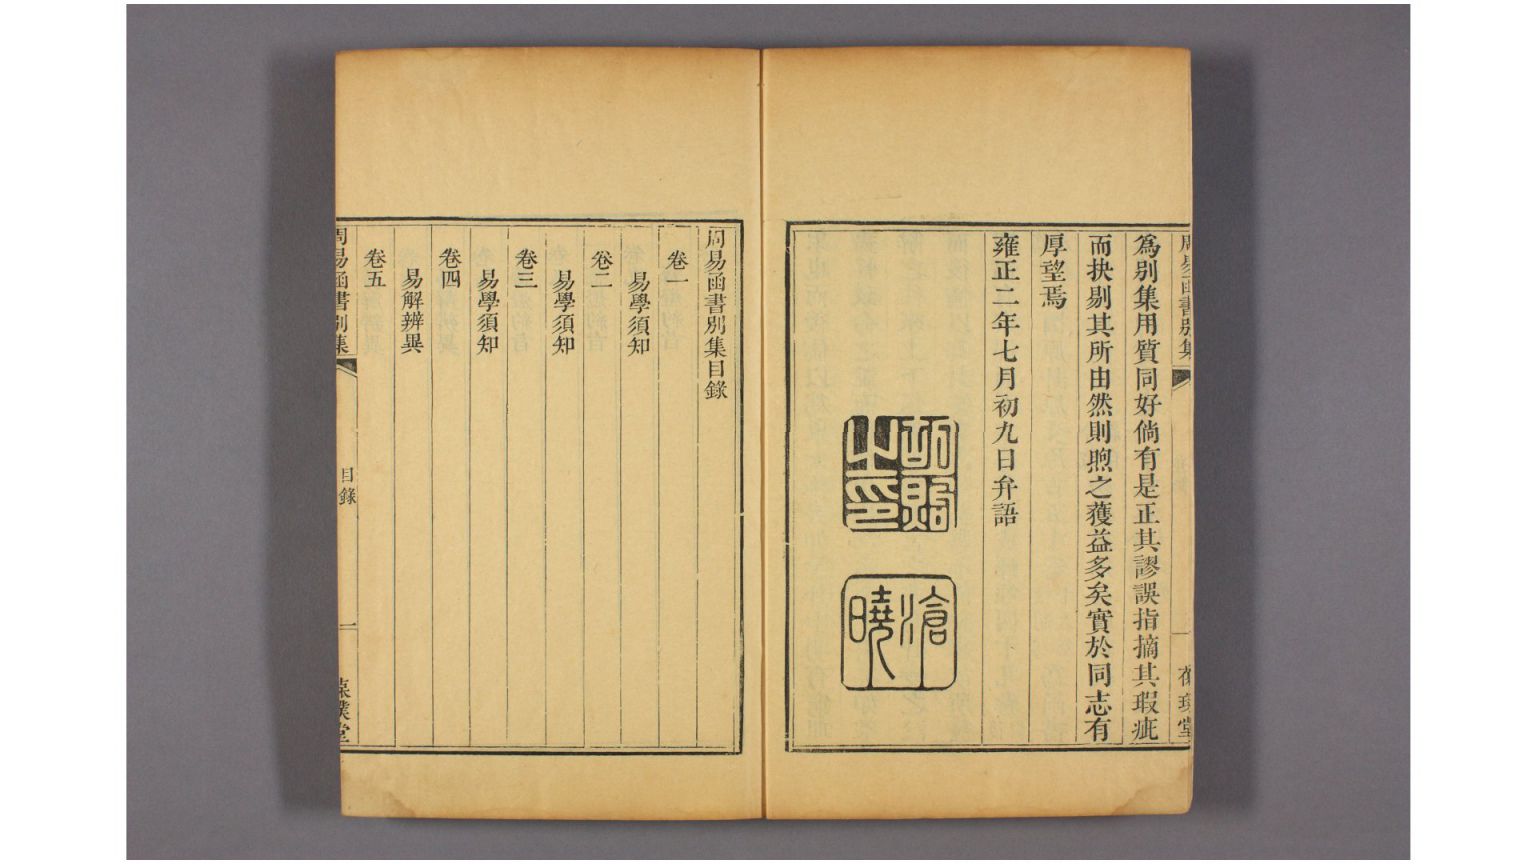 周易函書別集
一
葆璞堂
為別集用質同好倘有是正其謬誤指摘其瑕疵
而抉剔其所由然則煦之獲益多矣實於同志有
厚望焉
雍正二年七月初九日弁語
胡煦之印
滄曉
周易函書別集目錄
卷一
易學須知
卷二
易學須知
卷三
易學須知
卷四
易解辨異
卷五
周易函書別集
目錄
一
葆璞堂